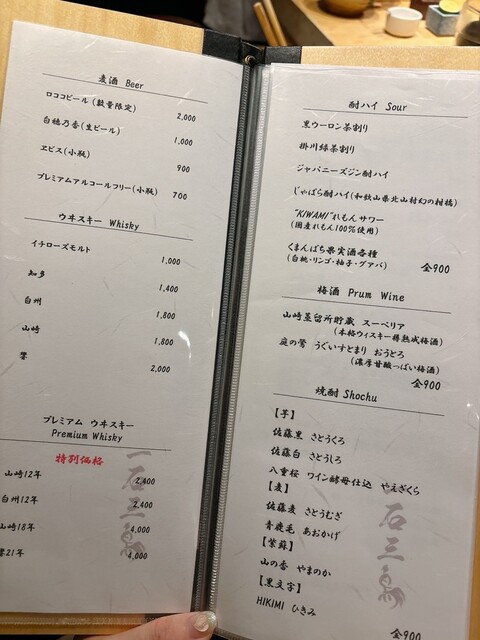 麦酒 Beer
ロココビール(数量限定) 2,000
白穂乃香(生ビール) 1,000
ヱビス(小瓶) 900
プレミアムアルコールフリー(小瓶) 700
ウヰスキー Whisky
イチローズモルト 1,000
知多 1,400
白州 1,800
山崎 1,800
響 2,000
プレミアム ウヰスキー
Premium Whisky
特別価格
山崎12年 2,400
白州12年 2,400
山崎18年 4,000
響21年 4,000
石三
酎ハイ Sour
黒ウーロン茶割り
掛川緑茶割り
ジャパニーズジン酎ハイ
じゃばら酎ハイ(和歌山県北山村幻の柑橘)
"KIWAMI"れもんサワー
(国産れもん100%使用)
くまんばち果実酒各種
(白桃・リンゴ・柚子・グアバ)
全900
梅酒 Prum Wine
山崎蒸留所貯蔵 スーペリア
(本格ウィスキー樽熟成梅酒)
庭の鶯 うぐいすとまり おうとろ
(濃厚甘酸っぱい梅酒)
全900
焼酎 Shochu
【芋】
佐藤黒 さとうくろ
佐藤白 さとうしろ
八重桜 ワイン酵母仕込 やえざくら
【麦】
佐藤麦 さとうむぎ
青鹿毛 あおかげ
【紫蘇】
山の香 やまのか
【黒文字】
HIKIMI ひきみ
全900
石三